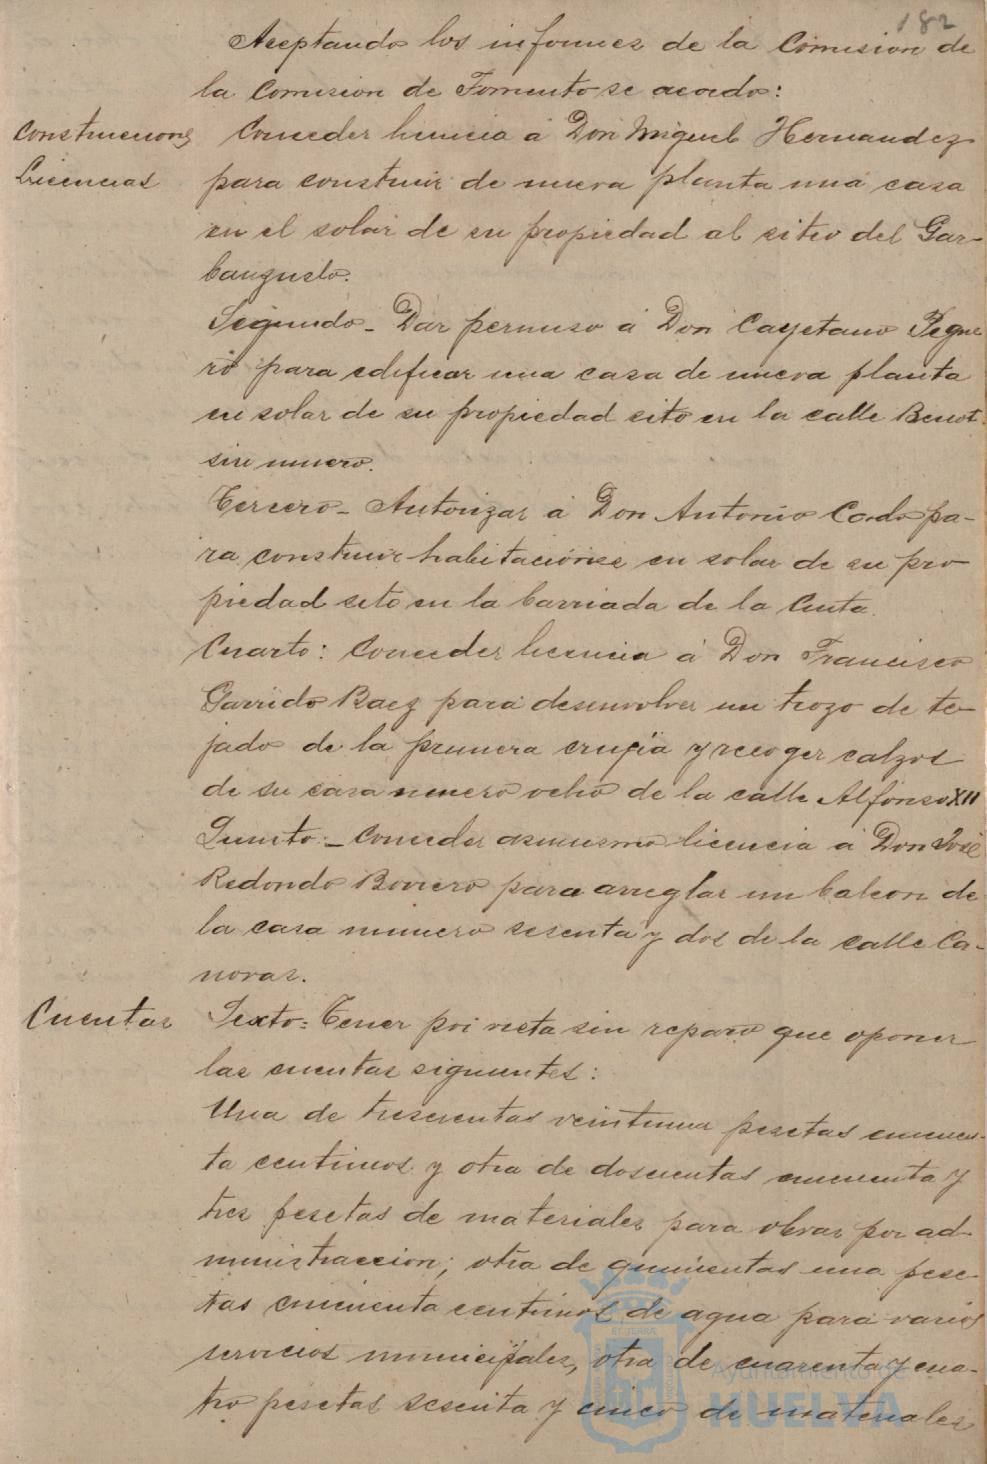 182
Aceptando los informes de la Comision de
la Comision de Fomento se acordo:
Construcciones
Licencias
Conceder licencia á Don Miguel Hernandez
para construir de nueva planta una casa
en el solar de su propiedad al sitio del Gar-
banzuelo.
Segundo - Dar permiso á Don Cayetano Segue
ro para edificar una casa de nueva planta
en solar de su propiedad sito en la calle Benot
sin numero.
Tercero - Autorizar á Don Antonio Cordo pa-
ra construir habitaciones en solar de su pro
piedad sito en la barriada de la Cinta.
Cuarto: Conceder licencia á Don Francisco
Garrido Baez para desenvolver un trozo de te-
jado de la primera crujia y recoger calzos
de su casa numero ocho de la calle Alfonso XII
Quinto:- Conceder asimismo licencia á Don José
Redondo Borrero para arreglar un balcon de
la casa numero sesenta y dos de la calle Ca-
novas.
Cuentas
Sexto = Tener por vista sin reparo que oponer
las cuentas siguientes:
Una de trescientas veintiuna pesetas cincuen-
ta centimos y otra de doscientas cincuenta y
tres pesetas de materiales para obras por ad-
ministraccion; otra de quinientas una pese-
tas cincuenta centimos de agua para varios
servicios municipales, otra de cuarenta y cua-
tro pesetas sesenta y cinco de materiales
Ayuntamiento de
HUELVA